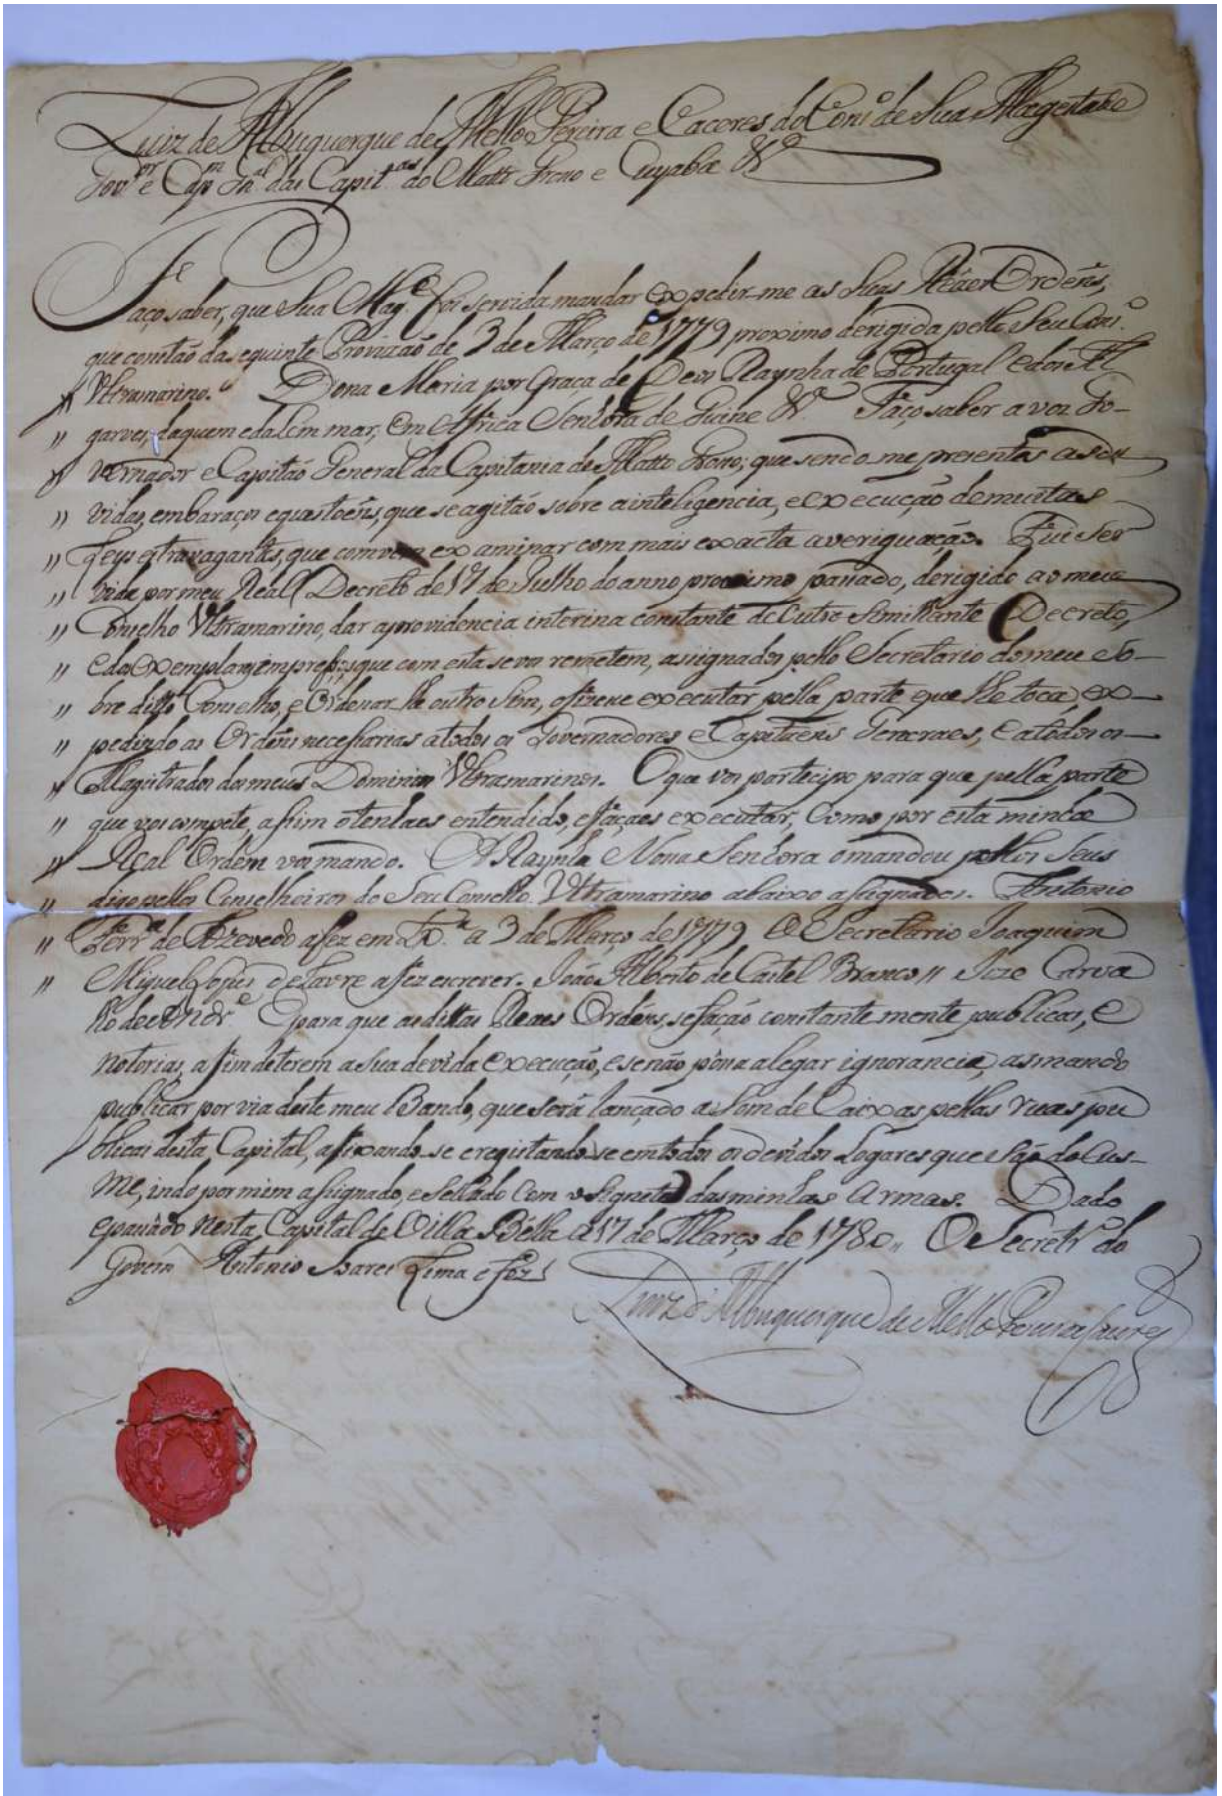 Luiz de Albuquerque de Mello Pereira e Caceres do Cons.º de Sua Magestade
Gov.or e Cap.m Gn.al das Capit.as do Matto Groso e Cuyabá &ª
Faço saber, que Sua Mag.e foi servida mandar expedir-me as Suas Reáes Ordens,
que constão da seguinte Provizão de 3 de Março de 1779 proximo derigida pello Seu Cons.º
" Ultramarino." Dona Maria por Graça de Deos Raynha de Portugal e dos Al
" garves, daquem e dalem mar, em Africa Senhora de Guine &ª Faço saber a vos Go-
" vernador e Capitão General da Capitania de Matto Groso; que sendo-me prezentes as du
" vidas, embaraços e questoens, que se agitão sobre a inteligencia, e execução de muitas
" Leys extravagantes, que convem examinar com mais exacta averiguação. Fui Ser
" vida por meu Real Decreto de 17 de Julho do anno proximo passado, derigido ao meu
" Conselho Ultramarino, dar a providencia interina constante de Outro Semilhante Decreto,
" e dos exemplares impressos, que com esta se vos remetem, assignados pello Secretario do meu So-
" bre ditto Conselho, e Ordenar-lhe outro Sim, o fizese executar pella parte que lhe toca, ex-
" pedindo as Ordens necessarias a todos os Governadores e Capitaens Generaes, e a todos os
" Magistrados dos meus Dominios Ultramarinos. O que vos partecipo para que pella parte
" que vos compete, assim o tenhaes entendido, e façaes executar, Como por esta minha
" Real Ordem vos mando. A Raynha Nossa Senhora o mandou pellos Seus
" digo pellos Conselheiros do Seu Conselho Ultramarino abaixo assignados. Antonio
" Ferr.ª de Azevedo a fez em Lx.ª a 3 de Março de 1779 O Secretario Joaquim
" Miguel Lopes de Lavre a fez escrever. João Alberto de Castel Branco " Joze Carva
lho de Andr.e E para que as dittas Reaes Ordens, se fação constante mente publicas, e
notorias, a fim de terem a sua devida execução, e se não possa alegar ignorancia, as mando
publicar por via deste meu Bando, que será lançado a Som de Caixas pellas ruas pu
blicas desta Capital, afixando-se e registando-se em todos os devidos Logares que são do Cus-
tume, indo por mim assignado, e Sellado com o Signete das minhas Armas. Dado
e passado nesta Capital de Villa Bella a 17 de Março de 1780,, O Secretr.º do
Govern Antonio Soares Lima e fez
Luiz d'Albuquerque de Mello Pereira Caceres